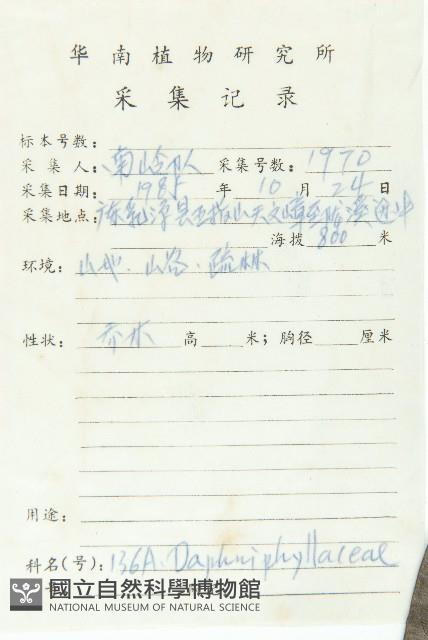 华南植物研究所
采集记录
标本号数：
采集人：南岭队 采集号数：1970
采集日期：1985年10月24日
采集地点：乳源县五指山
海拔800米
环境：山地．山谷．疏林
性状：乔木 高 米；胸径 厘米
用途：
科名(号)：136A. Daphniphyllaceae
國立自然科學博物館
NATIONAL MUSEUM OF NATURAL SCIENCE